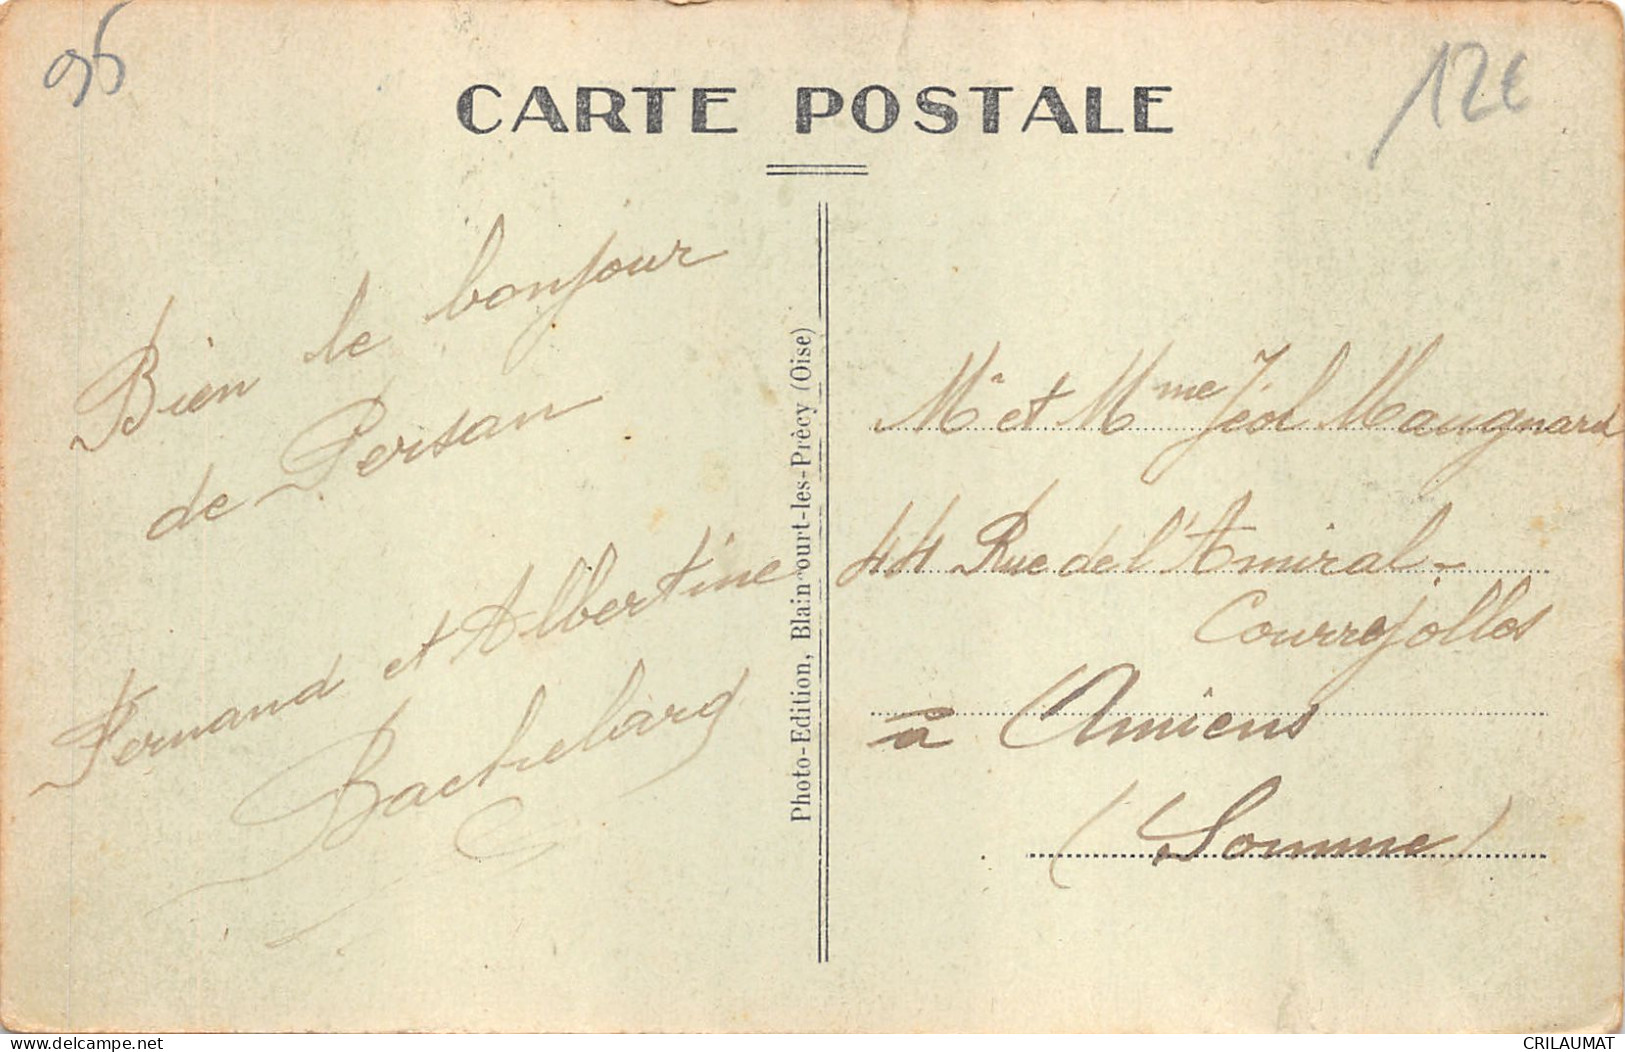 95
12€
CARTE POSTALE
Bien le bonjour
de Persan
Fernand et Albertine
Bachelard
Photo-Edition, Blaincourt-les-Précy (Oise)
Mr et Mme Maugnard
44 Rue de l'Amiral-
Courrejolles
à Amiens
(Somme)
www.delcampe.net
CRILAUMAT